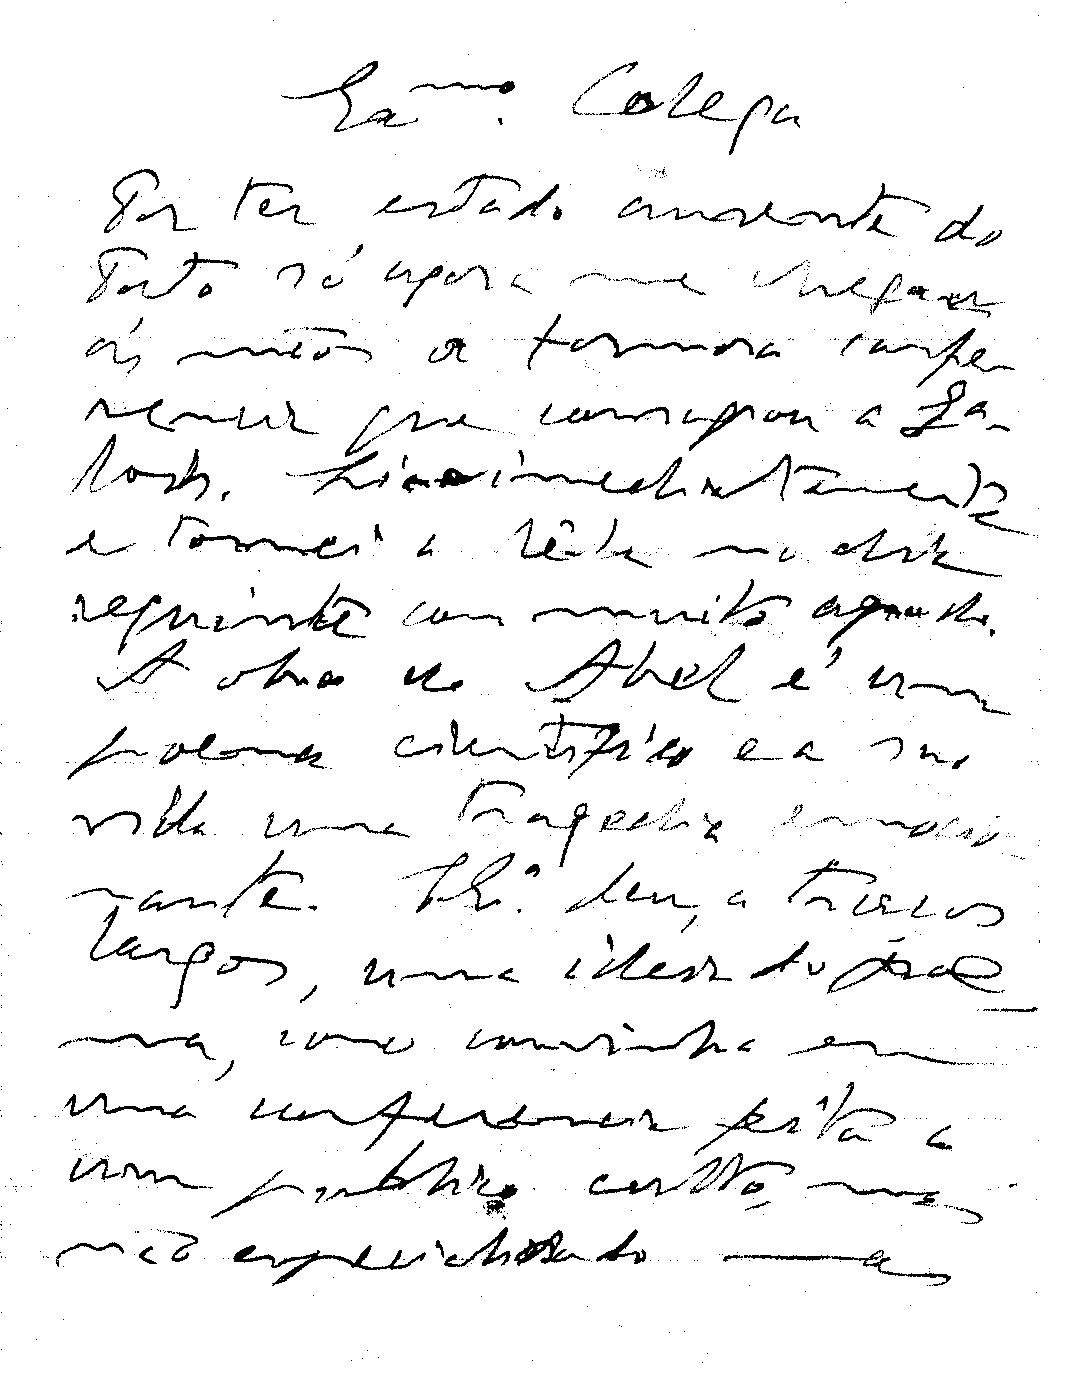 Exmo. Colega
Por ter estado ausente do
Porto só agora me chegou
ás mãos a formosa confe
rencia que consagrou a Ga-
lois. Li-a immediatamente
e tornei a lê-la no dia
seguinte com muito agrado.
A obra de Abel é um
poema cientifico e a sua
vida uma tragedia emocio
nante. V. Ex.ª deu, a traços
largos, uma ideia do poe
ma, como convinha em
uma conferencia feita a
um publico culto, mas
não especialisado — as